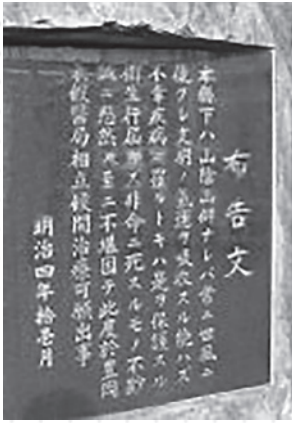 布告文
本縣下ハ山陰山僻ナレバ常ニ世風ニ
後クレ文明ノ氣運ヲ吸收スル能ハズ
不幸疾病ニ罹ルトキハ是ヲ保護スル
衛生行届ズ非命ニ死スルモノ不尠
誠ニ憫然ノ至ニ不堪因テ此度於豊岡
假醫局相立候間治療可願出事
明治四年拾壱月